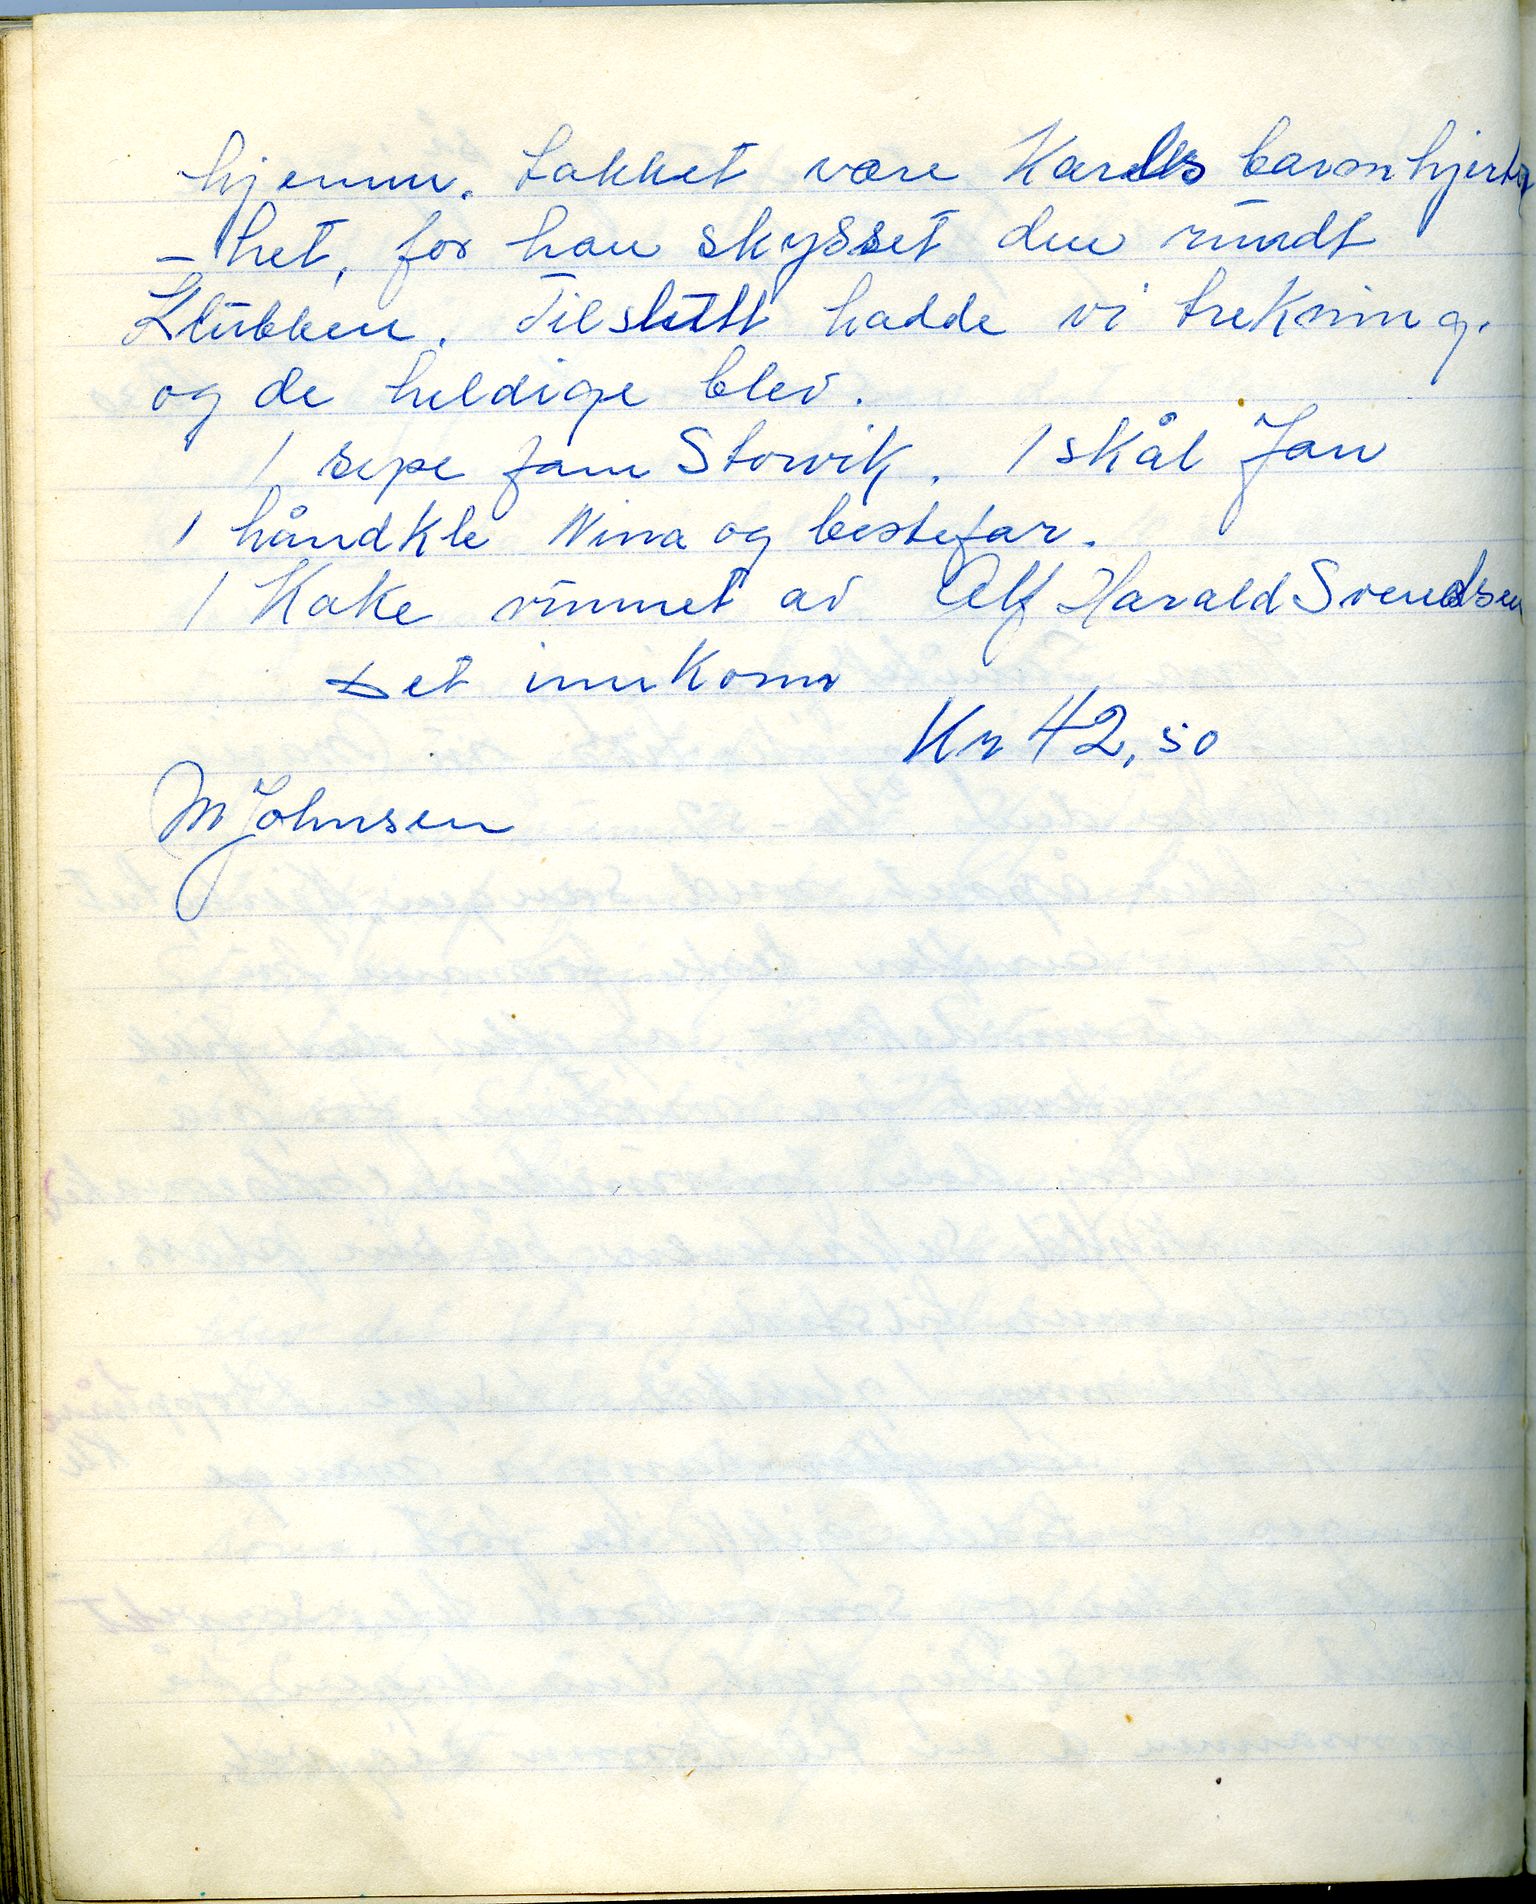 hjemm. takket være Karels barmhjertig
- het, for han skysset dem rundt
Klubben. Tilslutt hadde vi trekning.
og de heldige blev.
1 sepe fam Storvik. 1 skål Jan
1 håndkle Nina og bestefar.
1 Kake vunnet av Alf Harald Svendsen
Det innkom
Kr 42,50
M Johnsen